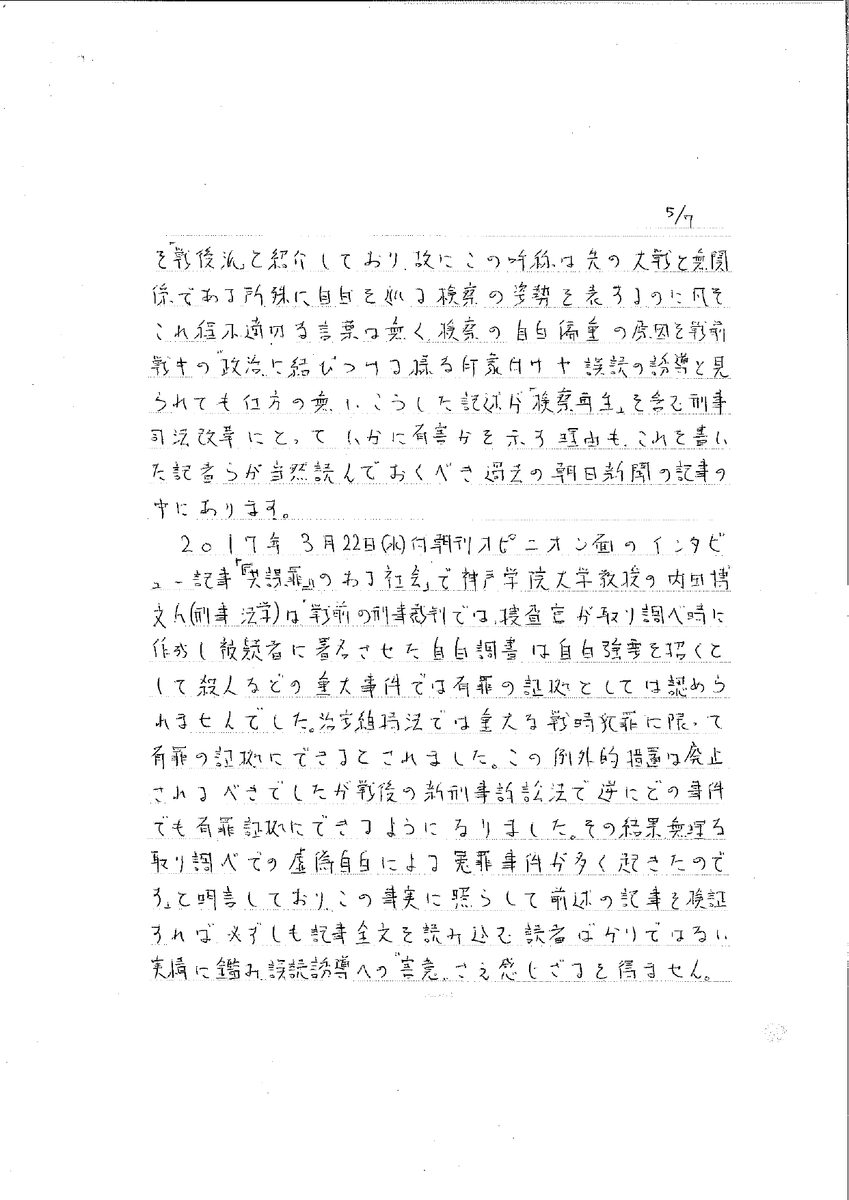 5/7
を「戦後派」と紹介しており、故にこの呼称は先の大戦と無関
係である所、殊に自白を迫る検察の姿勢を表するのに凡そ
これ程不適切な言葉は無く、検察の自白偏重の原因を戦前
戦中の"政治"に結びつける様な印象付けや誤読の誘導と見
られても仕方の無い、こうした記述が「検察再生」を含む刑事
司法改革にとっていかに有害かを示す理由も、これを書い
た記者らが当然読んでおくべき過去の朝日新聞の記事の
中にあります。
2017年3月22日(水)付朝刊オピニオン面のインタビ
ュー記事「『共謀罪』のある社会」で神戸学院大学教授の内田博
文氏(刑事法学)は「戦前の刑事裁判では、捜査官が取り調べ時に
作成し被疑者に署名させた自白調書は自白強要を招くと
して殺人などの重大事件では有罪の証拠としては認めら
れませんでした。治安維持法では重大な戦時犯罪に限って
有罪の証拠にできるとされました。この例外的措置は廃止
されるべきでしたが戦後の新刑事訴訟法で逆にどの事件
でも有罪証拠にできるようになりました。その結果無理な
取り調べでの虚偽自白による冤罪事件が多く起きたので
す」と明言しており、この事実に照らして前述の記事を検証
すれば、必ずしも記事全文を読み込む読者ばかりではない
実情に鑑み、誤読誘導への"害意"さえ感じざるを得ません。